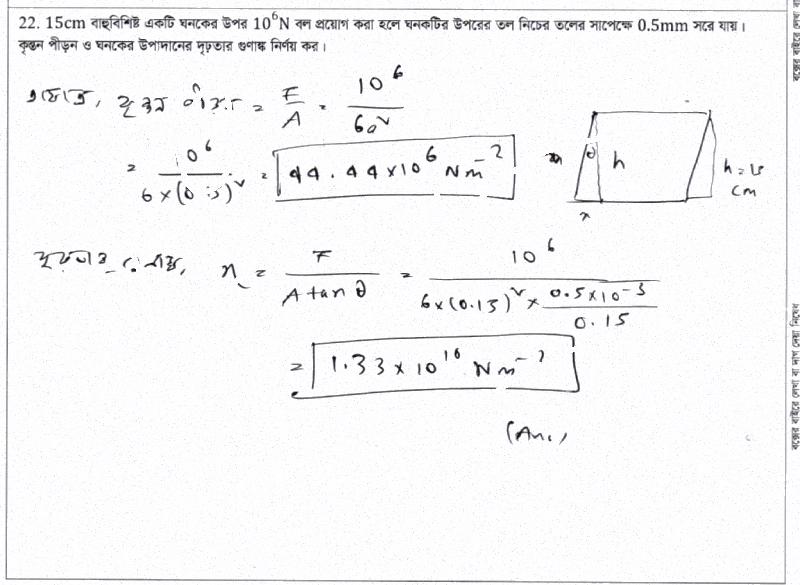 22. 15cm বাহুবিশিষ্ট একটি ঘনকের উপর 10⁶N বল প্রয়োগ করা হলে ঘনকটির উপরের তল নিচের তলের সাপেক্ষে 0.5mm সরে যায়।
কৃন্তন পীড়ন ও ঘনকের উপাদানের দৃঢ়তার গুণাঙ্ক নির্ণয় কর।
= F/A = 10⁶/6a²
= 10⁶/6×(0.15)² = 44.44×10⁶ Nm⁻²
θ h h = 15 cm
x
n = F/A tan θ = 10⁶/6×(0.15)² × 0.5×10⁻³/0.15
= 1.33 × 10¹⁰ Nm⁻²
(Ans.)
বক্সের বাইরে লেখা বা দাগ দেয়া নিষেধ